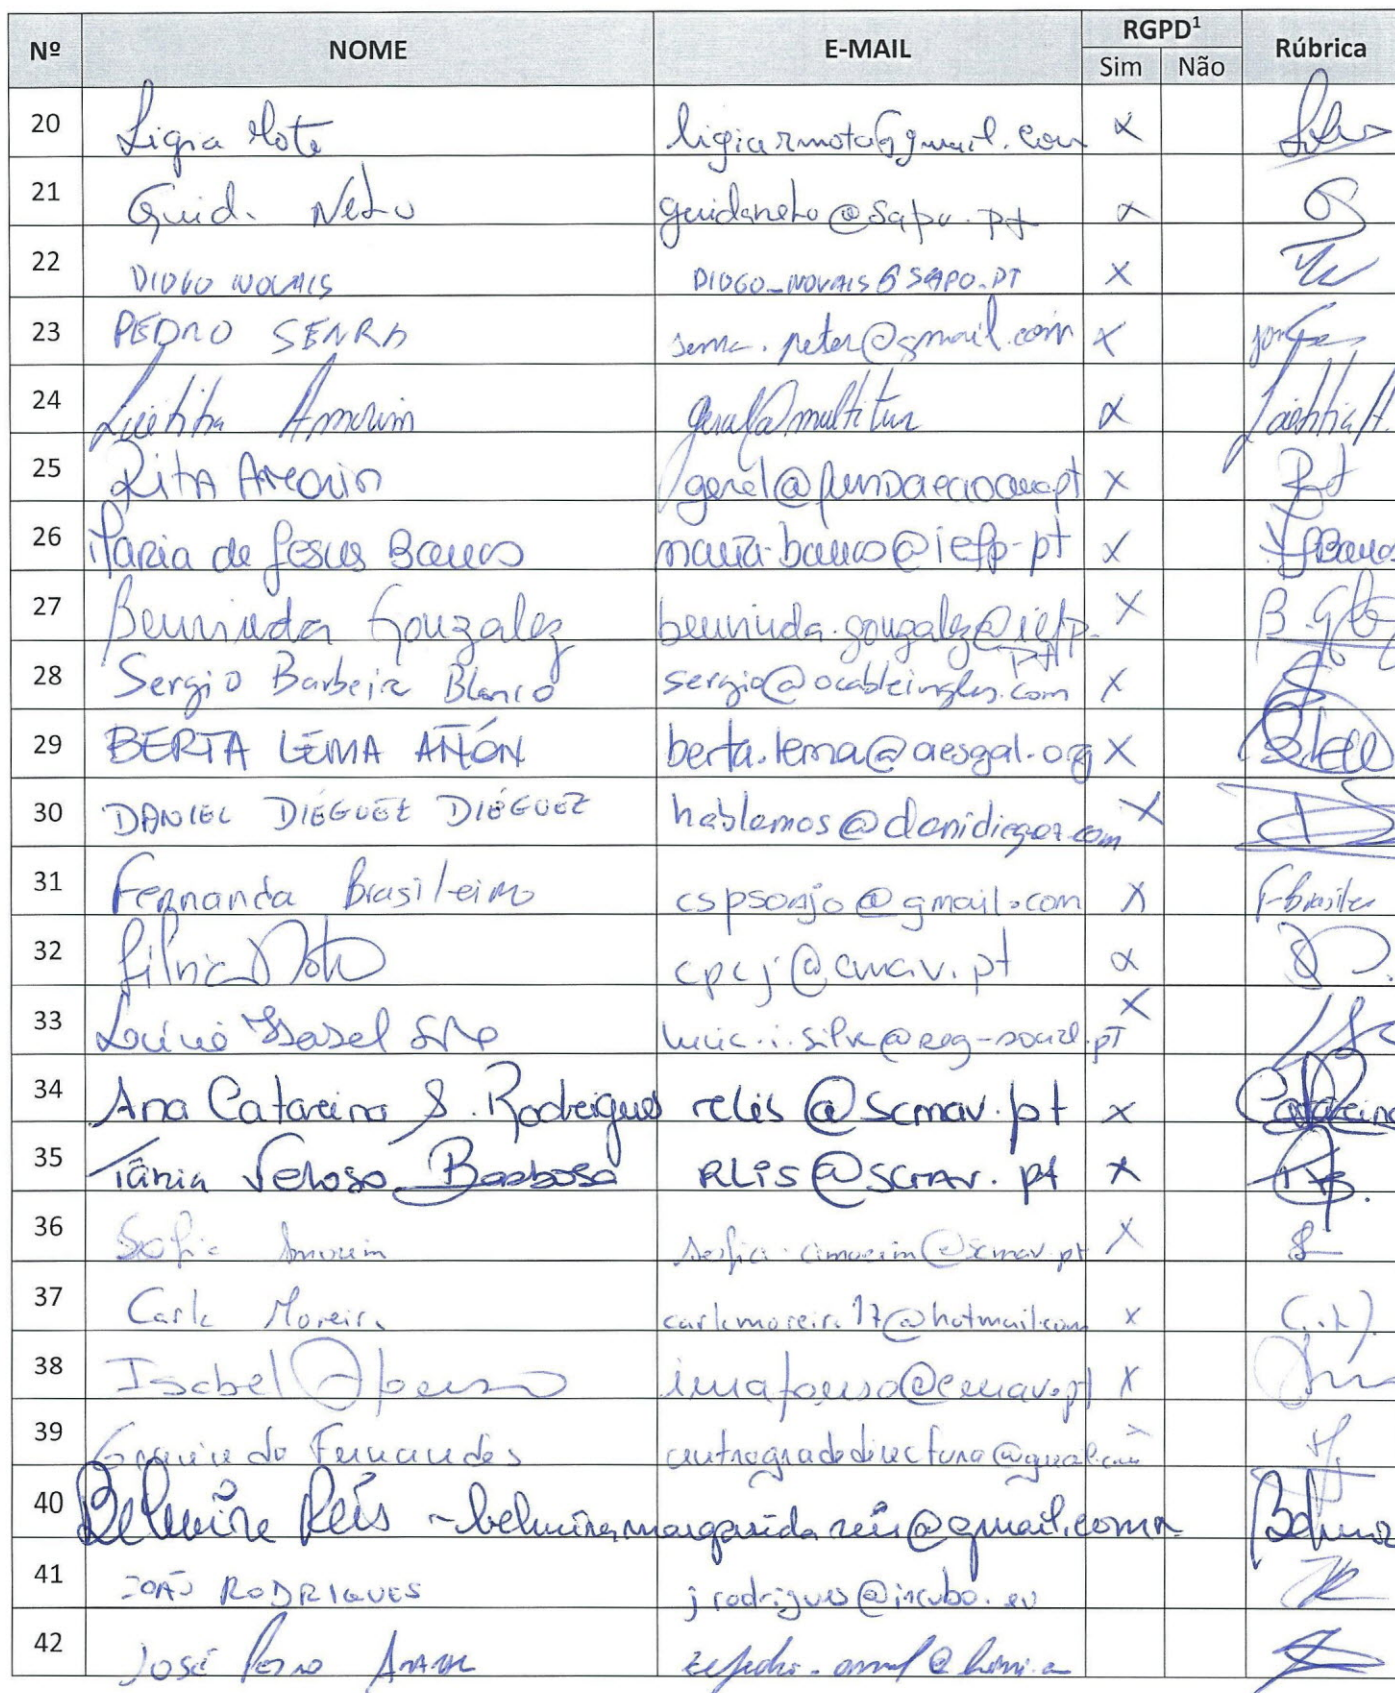 Nº NOME E-MAIL RGPD¹ Rúbrica
Sim Não
20 Ligia Mota ligiarmota@gmail.com x
21 Guida Neto guidaneto@sapo.pt x
22 DIOGO NOVAIS DIOGO_NOVAIS@SAPO.PT X
23 PEDRO SENRA senra.peter@gmail.com X
24 Laetitia Amorim geral@multitur x Laetitia A.
25 Rita Amorim X
26 Maria de Jesus Barros maria.barros@iefp.pt x
27 Benvinda Gonzalez benvinda.gonzalez@iefp.pt X
28 Sergio Barbeira Blanco sergio@ocableingles.com X
29 BERTA LEMA AÑÓN berta.lema@aesgal.org X
30 DANIEL DIÉGUEZ DIÉGUEZ hablamos@danidieguez.com X
31 Fernanda Brasileiro cspsoajo@gmail.com X
32 Silvia cpcj@cmav.pt x
33 Isabel X
34 Ana Catarina S. Rodrigues relis@scmav.pt x Catarina
35 Tânia Veloso Barbosa RLIS@SCMAV.pt x
36 Sofia Amorim sofia.amorim@scmav.pt X
37 Carla Moreira carlamoreira17@hotmail.com x
38 Isabel Afonso imafonso@cmav.pt X
39 Fernandes
40 Belmira Reis - belmiramargaridareis@gmail.com
41 JOÃO RODRIGUES jrodrigues@incubo.eu
42 JOSÉ Pedro Amaral